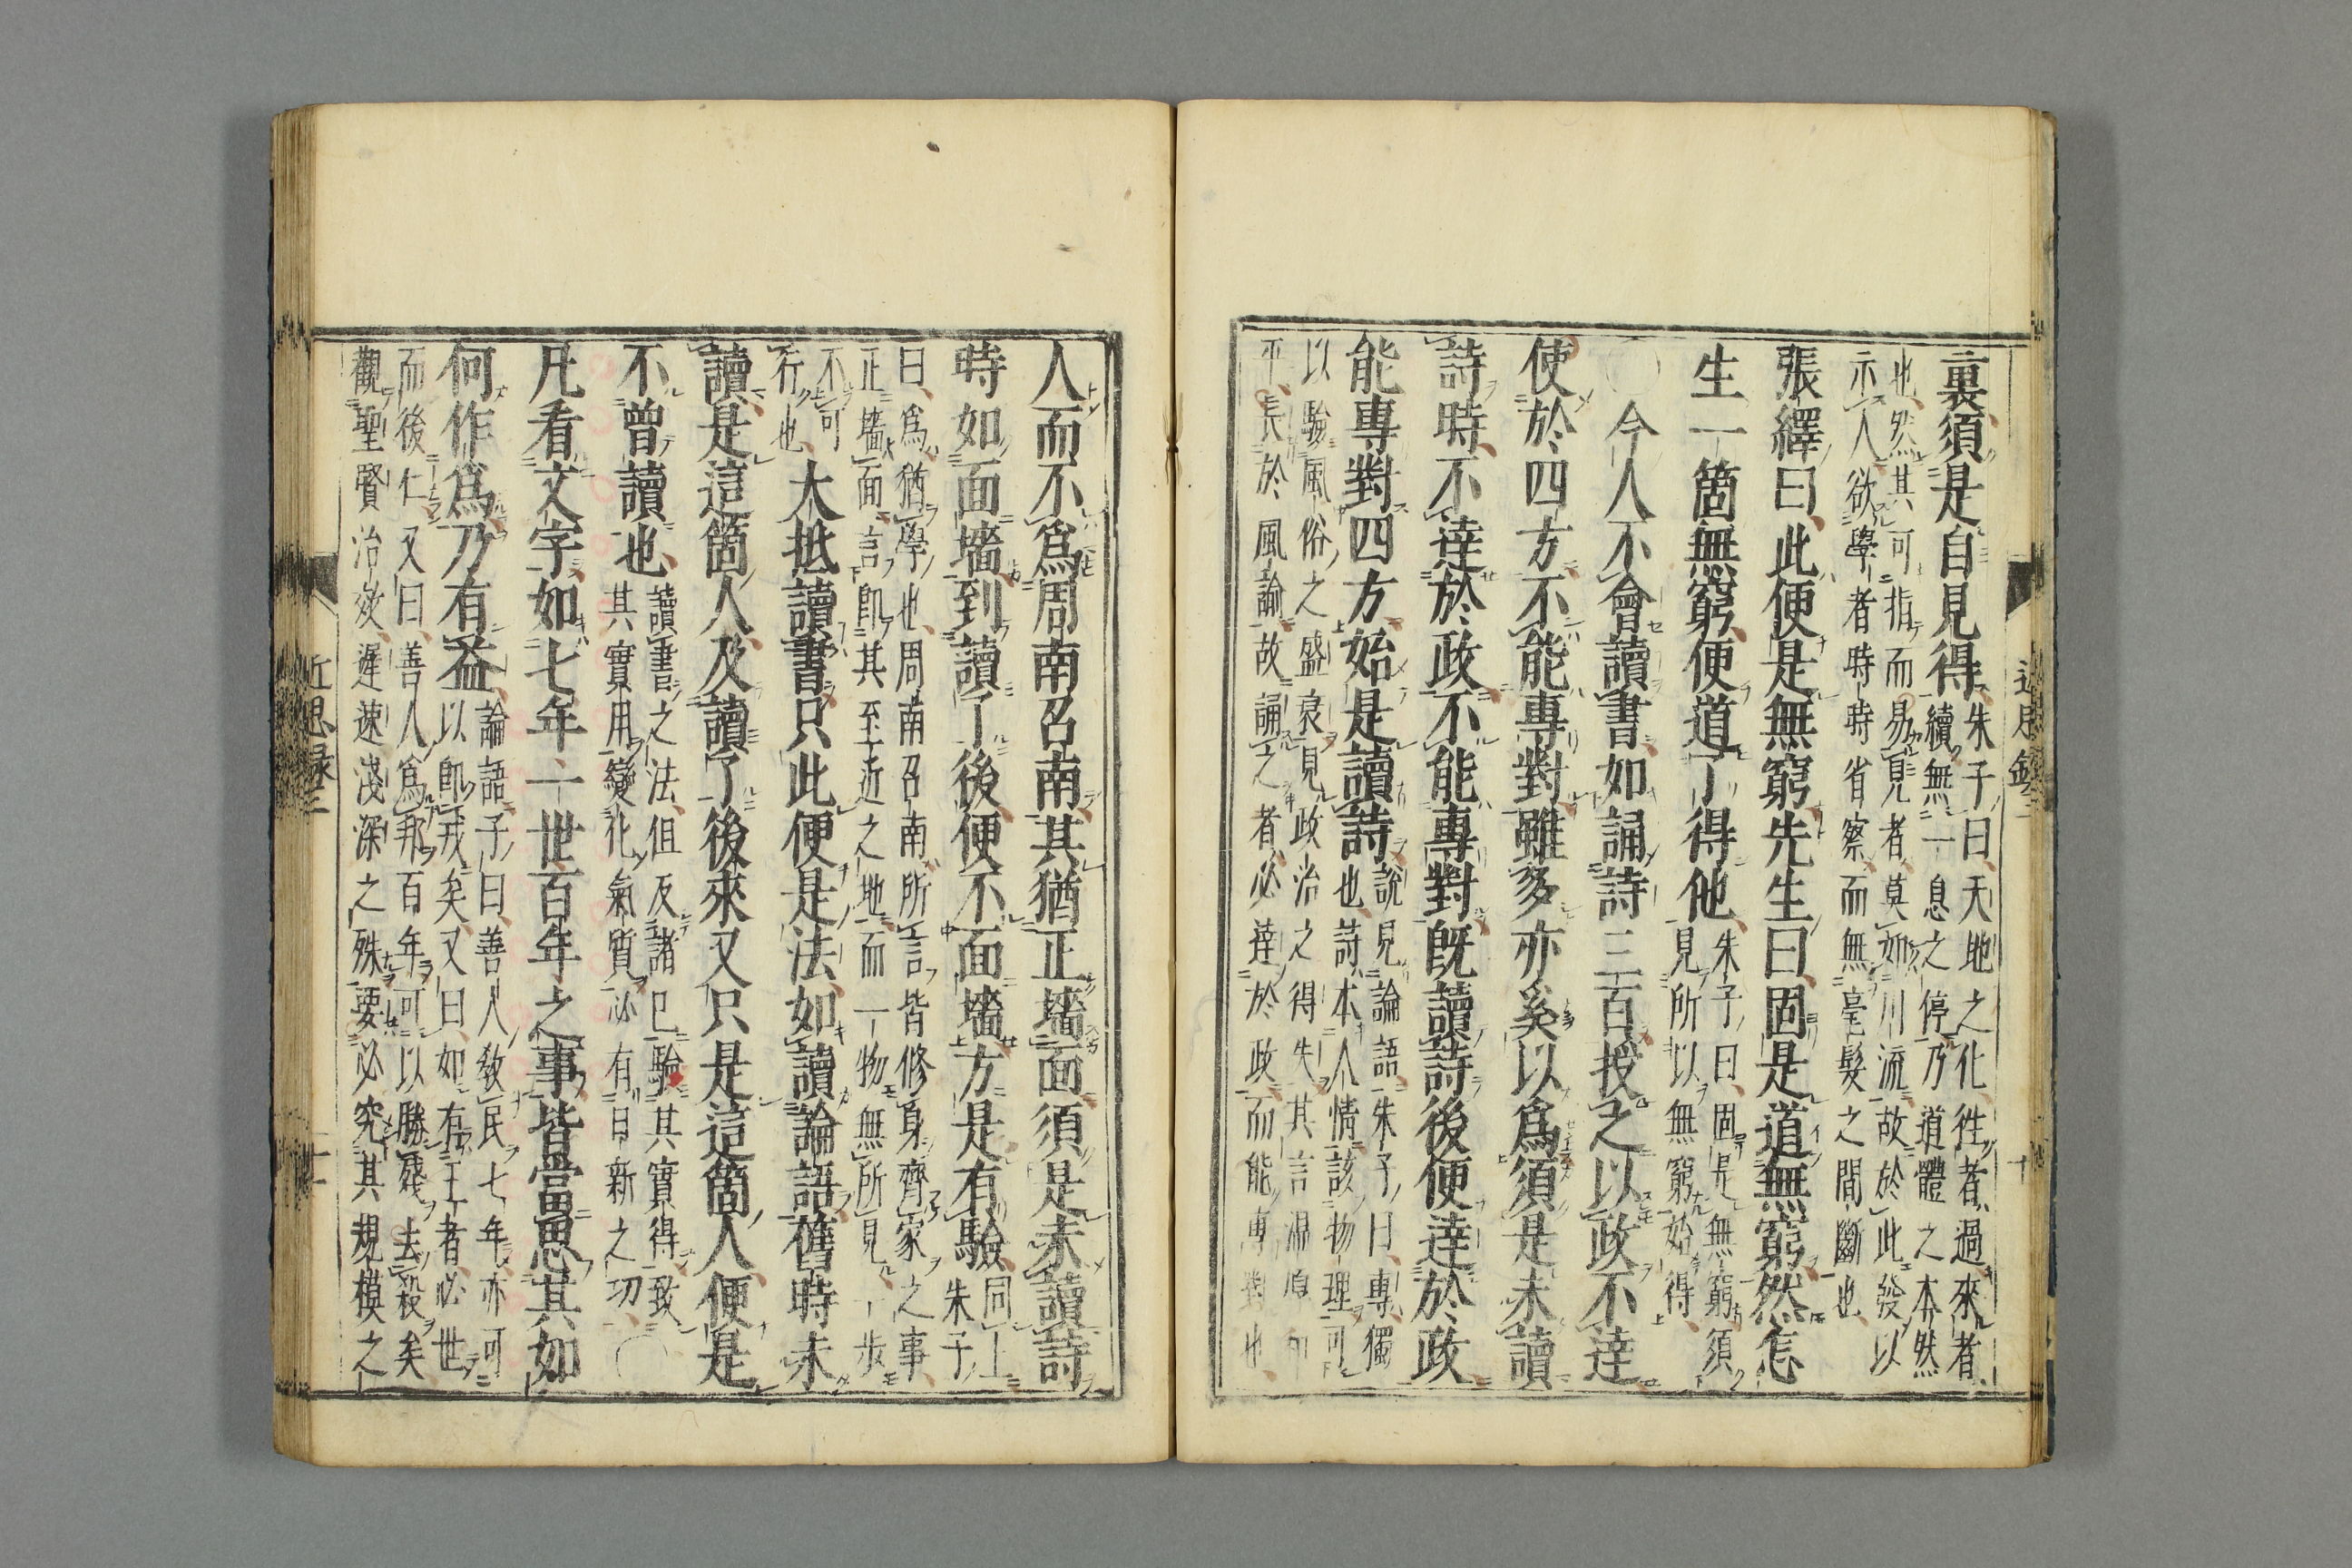 裏須是自見得
朱子曰天地之化徃者過來者
續無一息之停乃道體之本然
也然其可指而易見者莫如川流故於此發以
示人欲學者時時省察而無毫髮之間斷也
張繹曰此便是無窮先生曰固是道無窮然怎
生一箇無窮便道了得他
朱子曰固是無窮須
見所以無窮始得
○今人不會讀書如誦詩三百授之以政不達
使於四方不能專對雖多亦奚以爲須是未讀
詩時不達於政不能專對既讀詩後便達於政
能專對四方始是讀詩
說見論語朱子曰專獨
也詩本人情該物理可
以驗風俗之盛衰見政治之得失其言溫厚和
平長於風諭故誦之者必達於政而能專對也
近思録三
十
人而不爲周南召南其猶正墻面須是未讀詩
時如面墻到讀了後便不面墻方是有驗
同上
朱子
曰爲猶學也周南召南所言皆修身齊家之事
正墻面言即其至近之地而一物無所見一步
不可
行也
大抵讀書只此便是法如讀論語舊時未
讀是這箇人及讀了後來又只是這箇人便是
不曾讀也
讀書之法但反諸已驗其實得致
其實用變化氣質必有日新之功
○
凡看文字如七年一世百年之事皆當思其如
何作爲乃有益
論語子曰善人敎民七年亦可
以即戎矣又曰如有王者必世
而後仁又曰善人爲邦百年可以勝殘去殺矣
觀聖賢治效遲速淺深之殊要必究其規模之
近思録三
十一